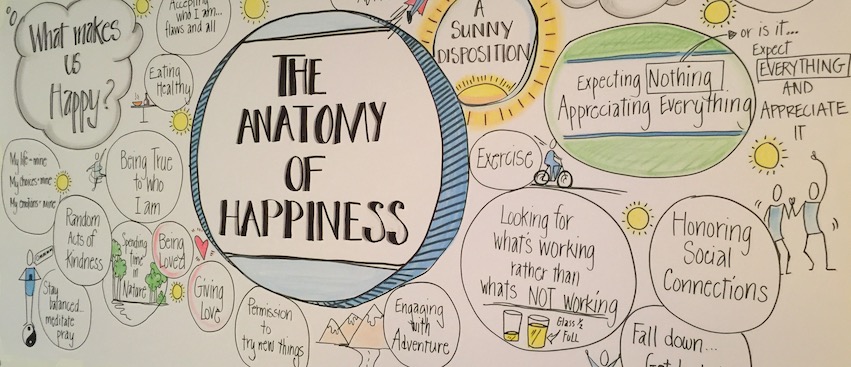 What makes
us
Happy?
Accepting
who I am...
flaws and all
Eating
Healthy
THE
ANATOMY
OF
HAPPINESS
A
SUNNY
DISPOSITION
Expecting Nothing
Appreciating Everything
or is it...
Expect
EVERYTHING
AND
APPRECIATE
IT
My life = mine
My choices = mine
My emotions = mine
Being True
to who
I am
Exercise
Random
Acts of
Kindness
Spending
time in
Nature
Being
Loved
Giving
Love
Stay
balanced...
meditate
pray
Permission
to
try new things
Engaging
with
Adventure
Looking for
what's working
rather than
what's NOT working
Glass 1/2
Full
Honoring
Social
Connections
Fall down...